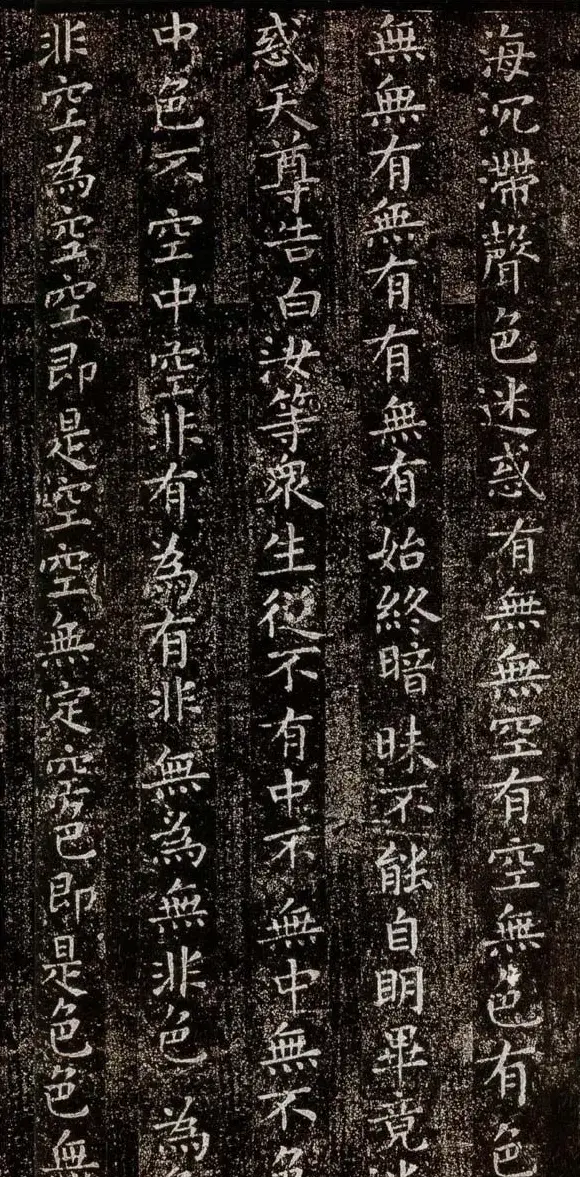 海沉滯聲色迷惑有無無空有空無色有色
無無有無有有無有始終暗昧不能自明畢竟迷
惑天尊告白汝等眾生從不有中不無中無不色
中色不空中空非有為有非無為無非色為
非空為空空即是空空無定空色即是色色無